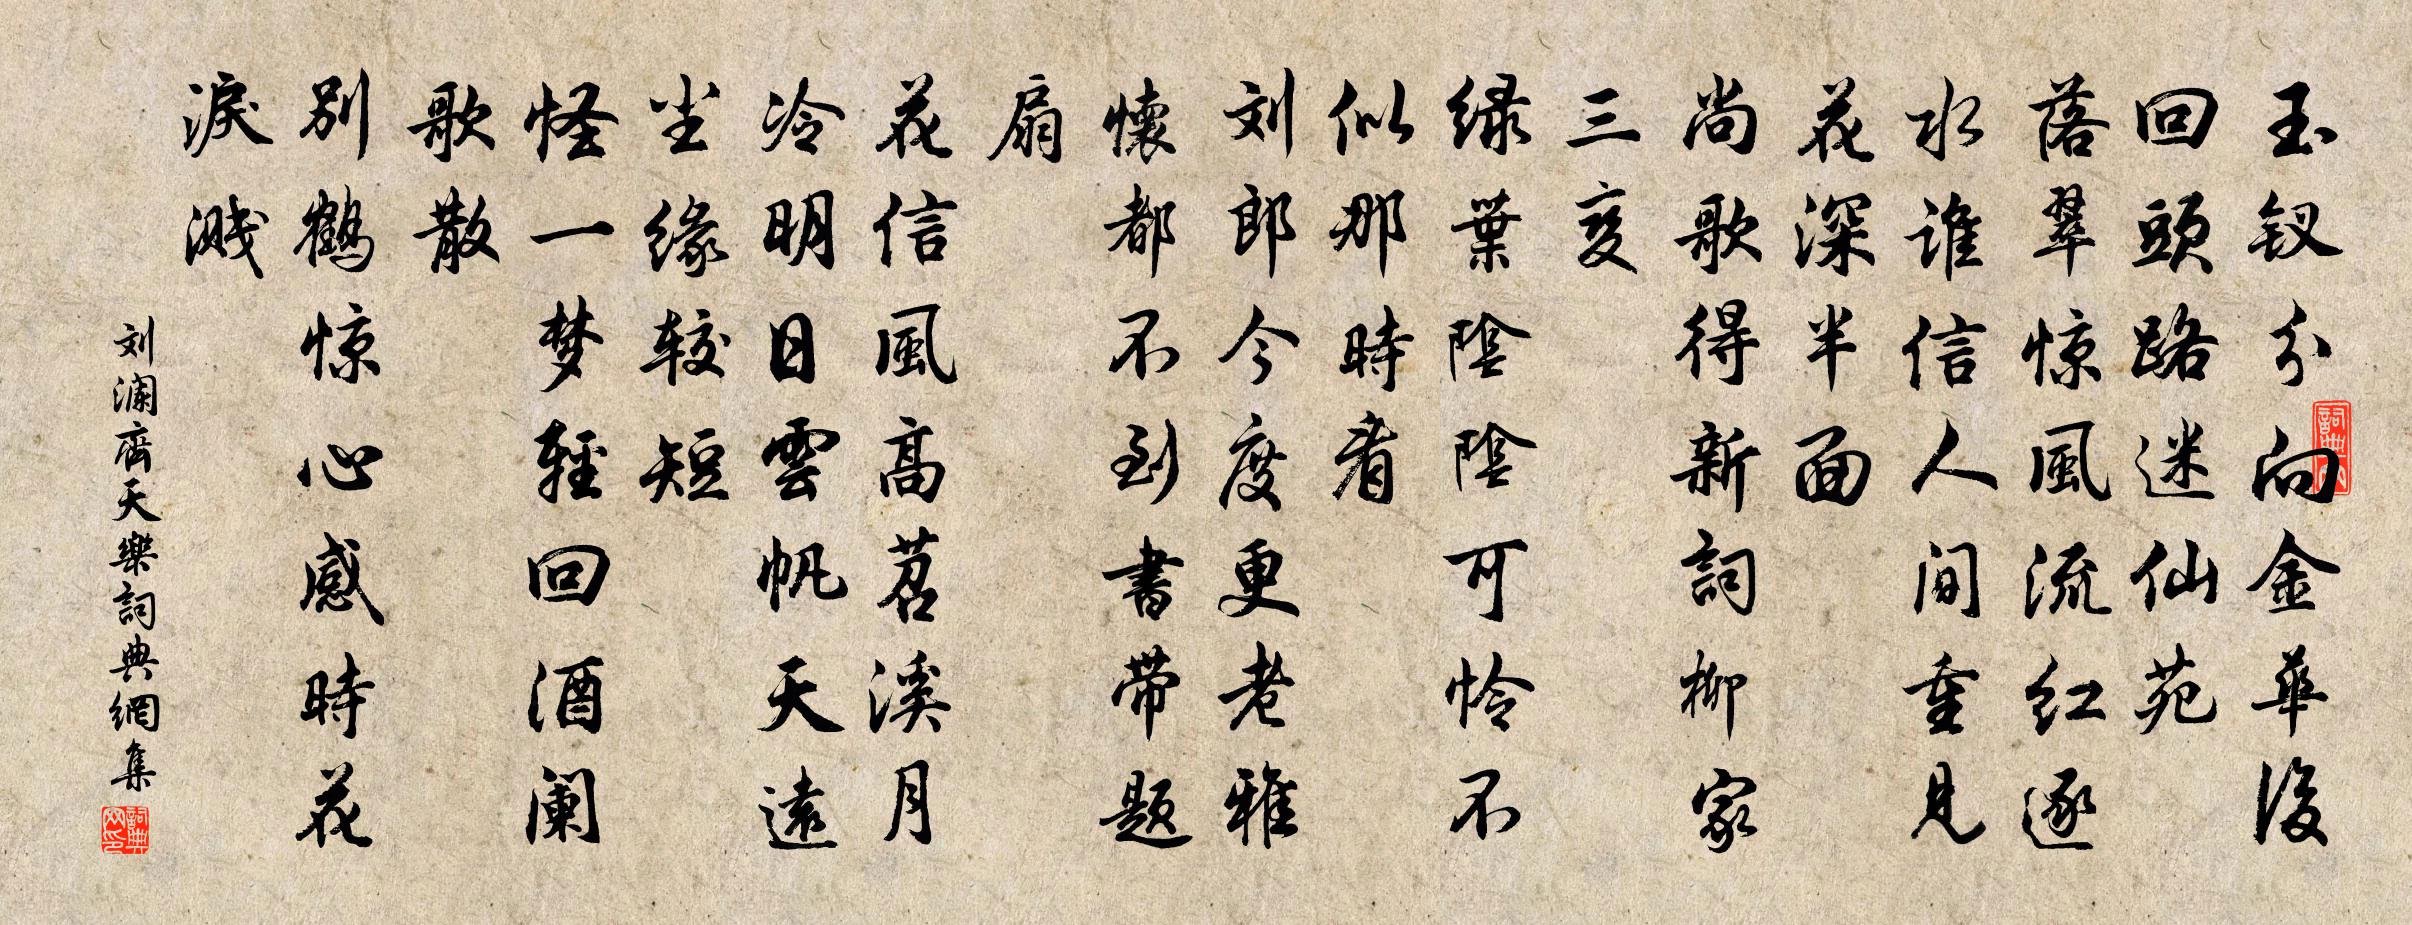 玉钗分向金華後
回頭路迷仙苑
落翠惊風流红逐
水谁信人间重見
花深半面
尚歌得新詞柳家
三变
绿葉陰陰可怜不
似那時看
刘郎今度更老雅
懷都不到書带题
扇
花信風高苕溪月
冷明日雲帆天遠
尘缘较短
怪一梦輕回酒阑
歌散
别鶴惊心感時花
淚溅
刘澜齊天樂詞典網集